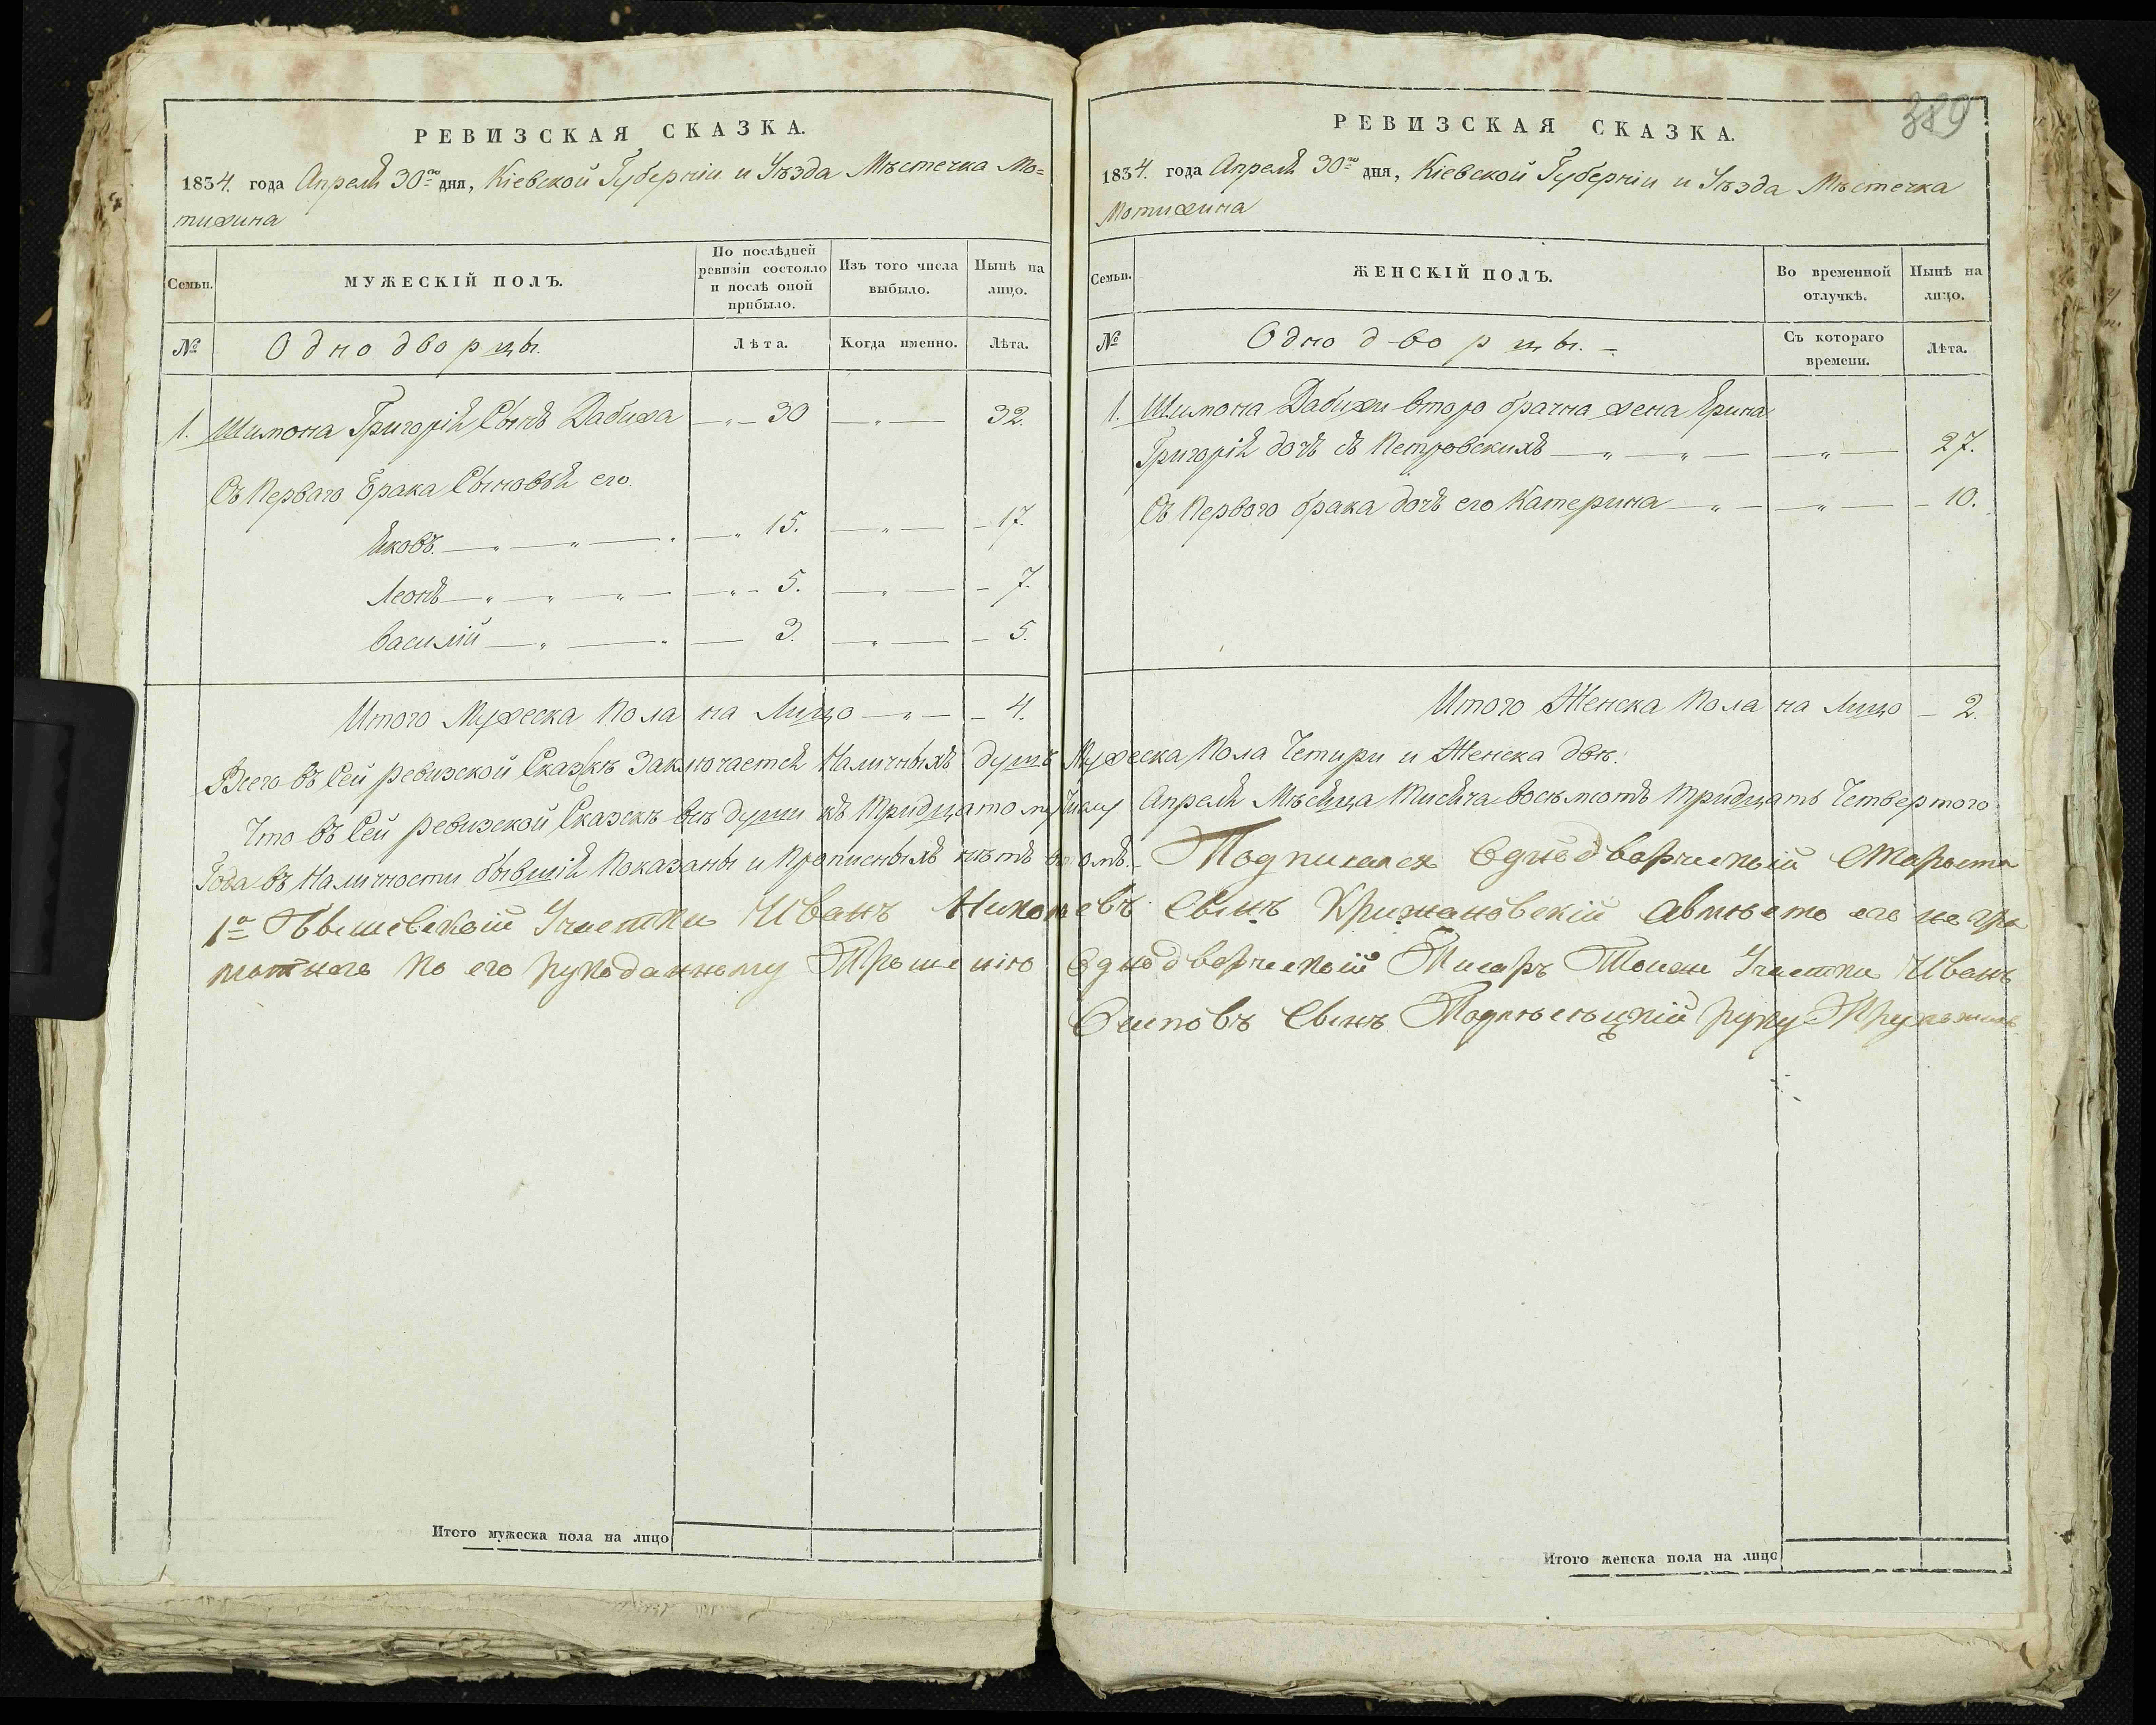 РЕВИЗСКАЯ СКАЗКА.
1834. года Апреля 30го дня, Кіевской Губерніи и Уѣзда Мѣстечка Мо=
тижина
Семьи.
МУЖЕСКІЙ ПОЛЪ.
По послѣдней ревизіи состояло и послѣ оной прибыло.
Изъ того числа выбыло.
Нынѣ на лицо.
№
Однодворцы.
Лѣта.
Когда именно.
Лѣта.
1. Шимона Григорій Сынъ Дабижа — 30 — " — 32.
Съ Перваго брака Сыновья его.
Яковъ. — " 15. — " — 17.
Леонъ — " — 5. — " — 7.
Василій — " — 3. — " — 5.
Итого Мужеска Пола на Лицо — " — 4.
РЕВИЗСКАЯ СКАЗКА.
389
1834. года Апреля 30го дня, Кіевской Губерніи и Уѣзда Мѣстечка
Мотижина
Семьи.
ЖЕНСКІЙ ПОЛЪ.
Во временной отлучкѣ.
Нынѣ на лицо.
№
Однодворцы.
Съ котораго времени.
Лѣта.
1. Шимона Дабижи второ брачна жена Ярина
Григорій дочь съ Петровскихъ — " — " — " — 27.
Съ Первого брака дочь его Катерина — " — " — 10.
Итого Женска Пола на Лицо — 2.
Всего въ Сей ревизской Сказкѣ Заключается Наличныхъ душъ Мужеска Пола Четири и Женска двѣ.
Что въ Сей ревизской Сказкѣ всѣ души къ Тридцатому Числу Апреля Мѣсяца Тисяча восемсотъ тридцать Четвертого
Года въ Наличности бывшія Показаны и Прописныхъ нѣтъ въ омъ. Подписался Однодворческый Староста
1го Участка Иванъ сынъ Крижановскій авмѣсто его не гра
мотнаго по его рукоданному Прошенію Однодворческый Писаръ Участка Иванъ
Осиповъ Сынъ руку Приложилъ
Итого мужеска пола на лицо
Итого женска пола на лицо